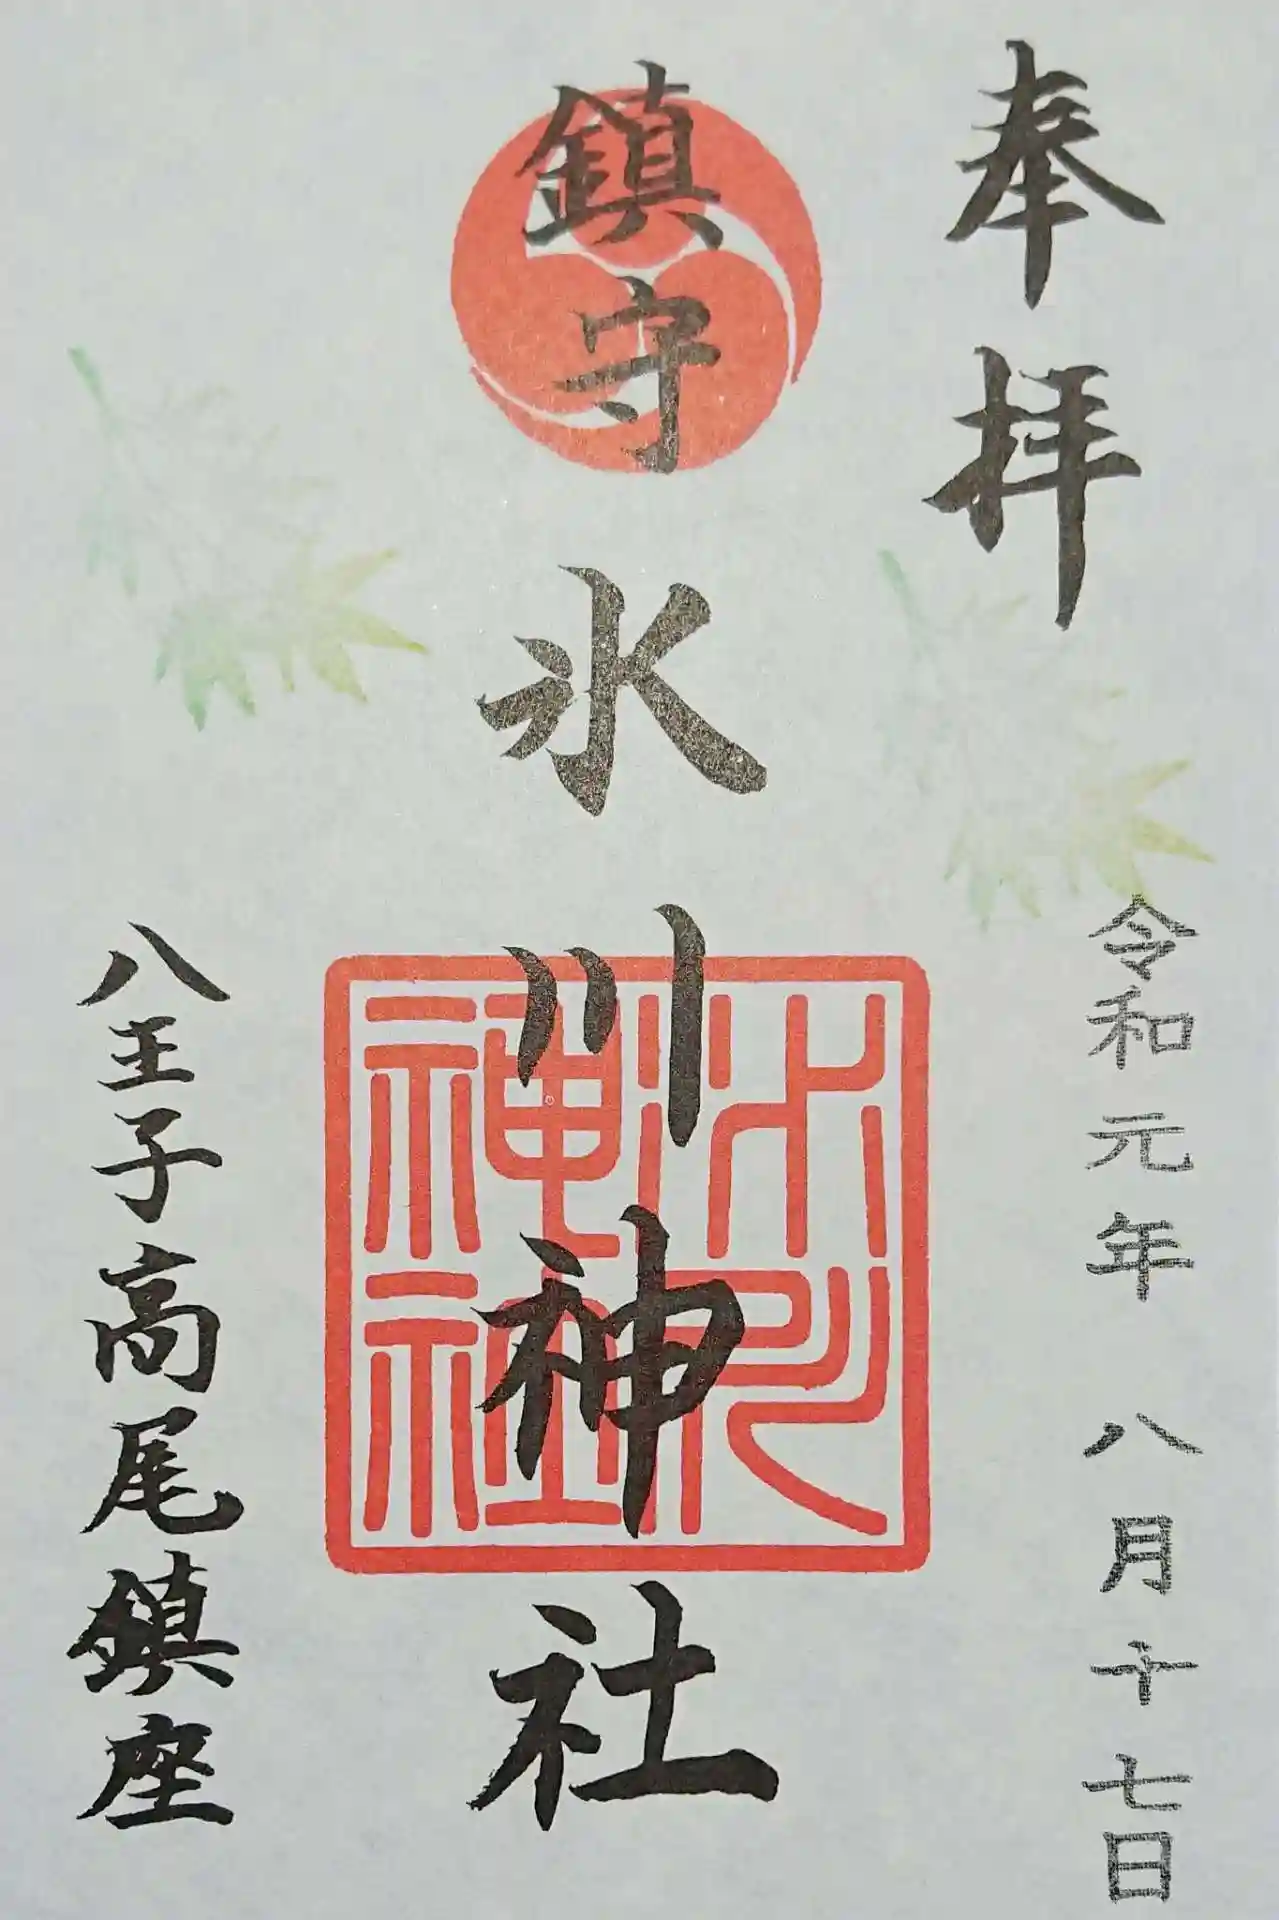 奉拝
令和元年 八月十七日
鎮守 氷川神社
氷川神社
八王子高尾鎮座